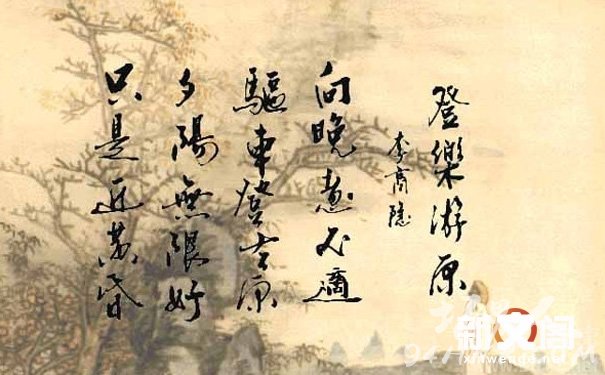 登樂游原
李商隐
向晚意不適
驅車登古原
夕陽無限好
只是近黄昏
新文阁
xinwenge.net